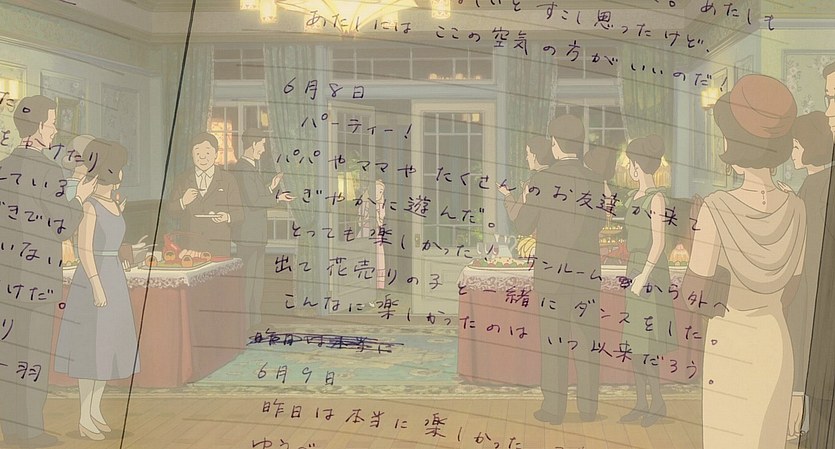 いと すこし思ったけど。あたしも
あたしには ここの空気の方がいいのだ！
6月8日
パーティー！
パパやママや たくさんのお友達が来て
にぎやかに遊んだ。
とっても楽しかった！ サンルームから外へ
出て花売りの子と一緒にダンスをした。
こんなに楽しかったのは いつ以来だろう。
6月9日
昨日は本当に楽しかった
ゆうべ
た。
かけたり、
ている
きでは
いない
けだ。
り
一羽